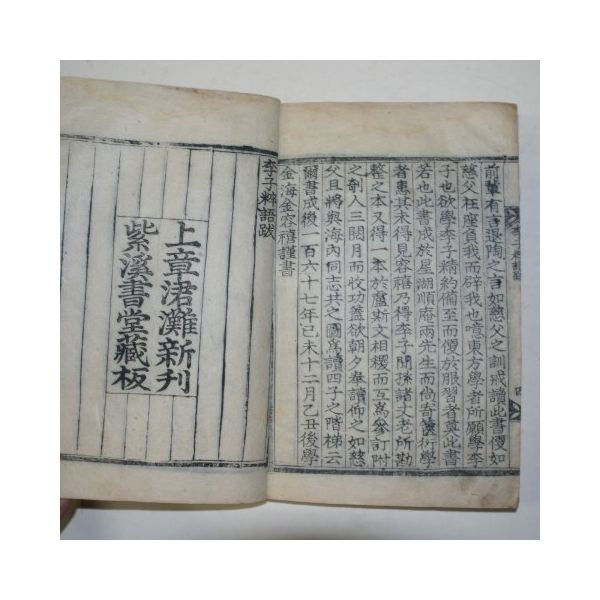 前輩有言退陶之言如慈父之訓戒讀此書便如
慈父在座負我而辟我也噫東方學者所願學李
子也欲學李子精約備至而便於服習者莫此書
若也此書成於星湖順庵兩先生而尚秘衍學
者患其未得見容禧乃得李子間孫諸丈老所勘
整之本又得一本於盧斯文相稷而互爲參訂附
之剞人三閱月而收功蓋欲朝夕奉讀仰之如慈
父且將與海內同志共之圖爲讀四子之階梯云
爾書成後一百六十七年己未十二月乙丑後學
金海金容禧謹書
李子粹語跋
上章涒灘新刊
紫溪書堂藏板